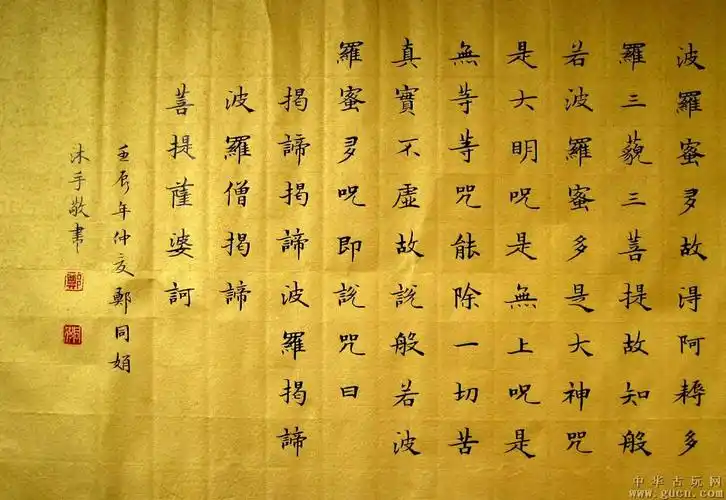 波羅蜜多故得阿耨多
羅三藐三菩提故知般
若波羅蜜多是大神咒
是大明咒是無上咒是
無等等咒能除一切苦
真實不虛故說般若波
羅蜜多咒即說咒曰
揭諦揭諦波羅揭諦
波羅僧揭諦
菩提薩婆訶
壬辰年仲夏鄭同娟
沐手敬書
中华古玩网
www.gucn.com